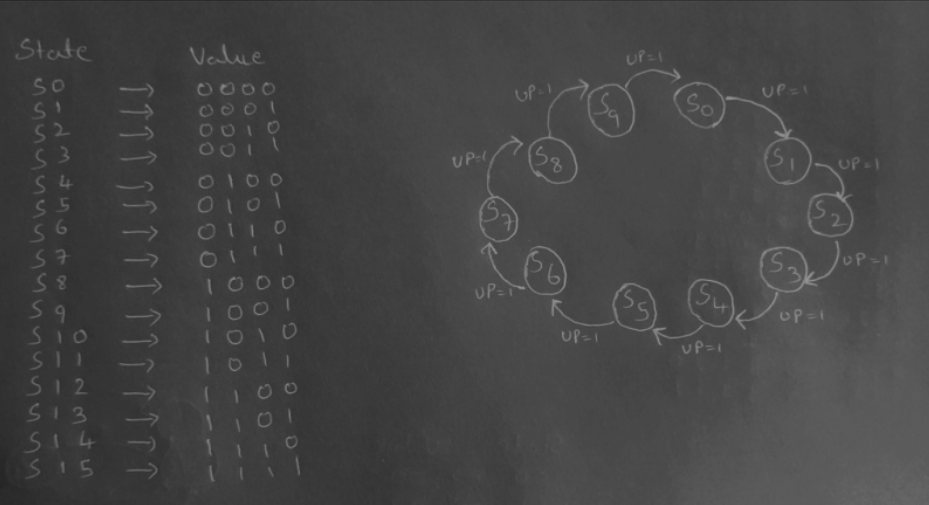 State Value
S0 → 0000
S1 → 0001
S2 → 0010
S3 → 0011
S4 → 0100
S5 → 0101
S6 → 0110
S7 → 0111
S8 → 1000
S9 → 1001
S10 → 1010
S11 → 1011
S12 → 1100
S13 → 1101
S14 → 1110
S15 → 1111
UP=1
UP=1
UP=1
S9
S0
UP=1
S8
S1
UP=1
S7
S2
S6
S3
UP=1
UP=1
S5
S4
UP=1
UP=1
UP=1